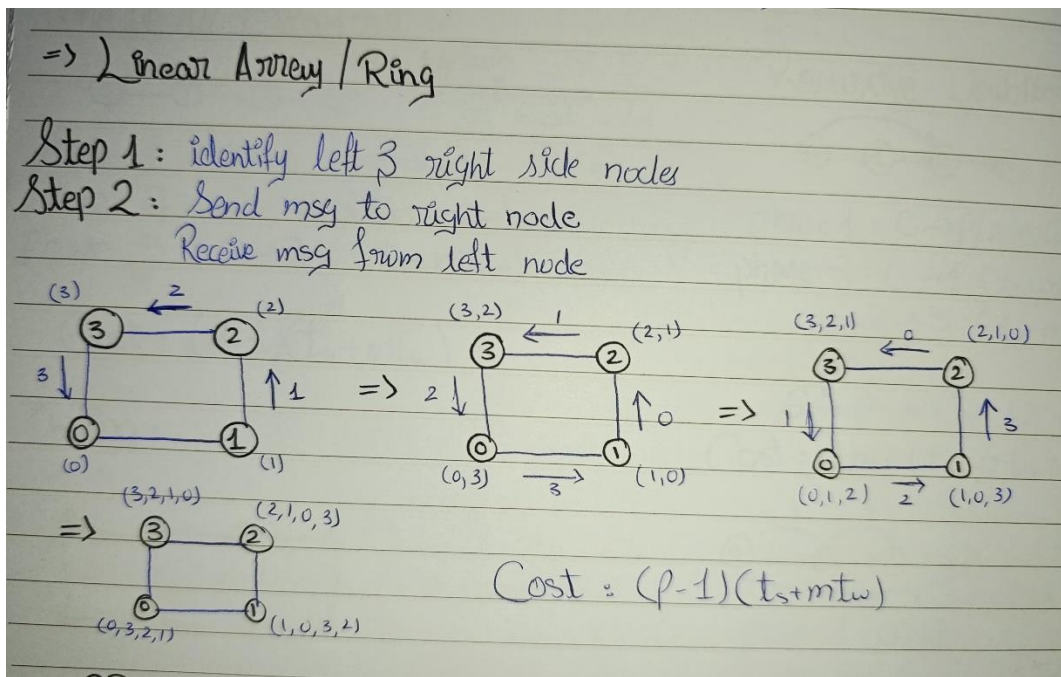 => Linear Array / Ring
Step 1: identify left & right side nodes
Step 2: Send msg to right node
Receive msg from left node
(3) 2 (2)
3 2
3 1
0 1
(0) (1)
=>
(3,2) 1 (2,1)
3 2
2 0
0 1
(0,3) 3 (1,0)
=>
(3,2,1) 0 (2,1,0)
3 2
1 3
0 1
(0,1,2) 2 (1,0,3)
=>
(3,2,1,0) (2,1,0,3)
3 2
0 1
(0,3,2,1) (1,0,3,2)
Cost : (P-1)(ts+mtw)